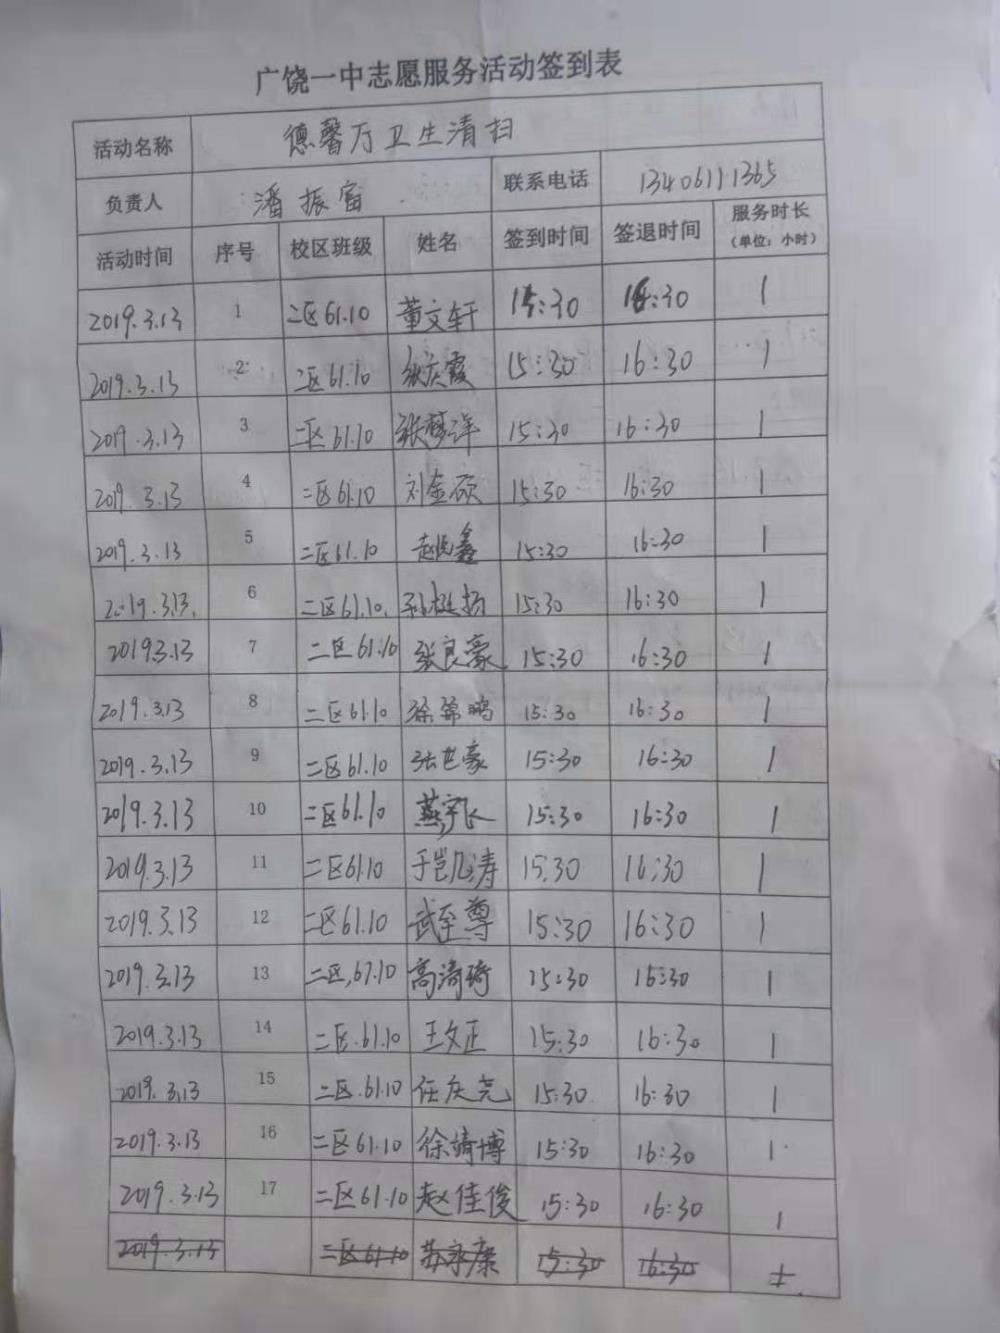 广饶一中志愿服务活动签到表
活动名称 德馨厅卫生清扫
负责人 潘振富 联系电话 13406111365
活动时间 序号 校区班级 姓名 签到时间 签退时间 服务时长（单位：小时）
2019.3.13 1 二区61.10 董文轩 15:30 16:30 1
2019.3.13 2 二区61.10 张庆霞 15:30 16:30 1
2019.3.13 3 二区61.10 张梦洋 15:30 16:30 1
2019.3.13 4 二区61.10 刘金硕 15:30 16:30 1
2019.3.13 5 二区61.10 15:30 16:30 1
2019.3.13. 6 二区61.10. 15:30 16:30 1
2019.3.13 7 二区61.10 张良豪 15:30 16:30 1
2019.3.13 8 二区61.10 徐锦鹏 15:30 16:30 1
2019.3.13 9 二区61.10 张世豪 15:30 16:30 1
2019.3.13 10 二区61.10 15:30 16:30 1
2019.3.13 11 二区61.10 于岂凡涛 15:30 16:30 1
2019.3.13 12 二区61.10 武至尊 15:30 16:30 1
2019.3.13 13 二区,61.10 高清琦 15:30 16:30 1
2019.3.13 14 二区.61.10 王文正 15:30 16:30 1
2019.3.13 15 二区.61.10 任庆尧 15:30 16:30 1
2019.3.13 16 二区61.10 徐靖博 15:30 16:30 1
2019.3.13 17 二区61.10 赵佳俊 15:30 16:30 1
2019.3.13 二区61.10 苏永康 15:30 16:30 1